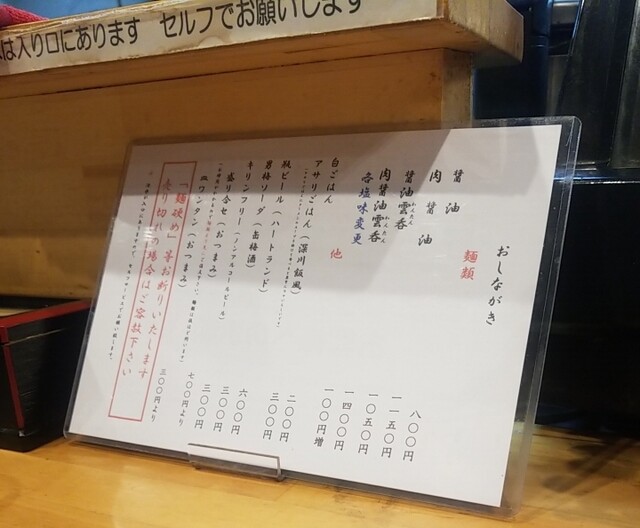 は入り口にあります　セルフでお願いします
おしながき
麺類
醤油　八〇〇円
肉醤油　一一五〇円
醤油雲呑　一〇五〇円
わんたん
肉醤油雲呑　一四〇〇円
わんたん
各塩味変更　一〇〇円増
他
白ごはん　二〇〇円
アサリごはん（深川飯風）　三〇〇円
瓶ビール（ハートランド）　六〇〇円
男梅ソーダ（缶梅酒）　三〇〇円
キリンフリー（ノンアルコールビール）　三〇〇円
盛り合せ（おつまみ）　七〇〇円より
皿ワンタン（おつまみ）　三〇〇円より
「麺硬め」等お断りいたします
売り切れの場合はご容赦下さい